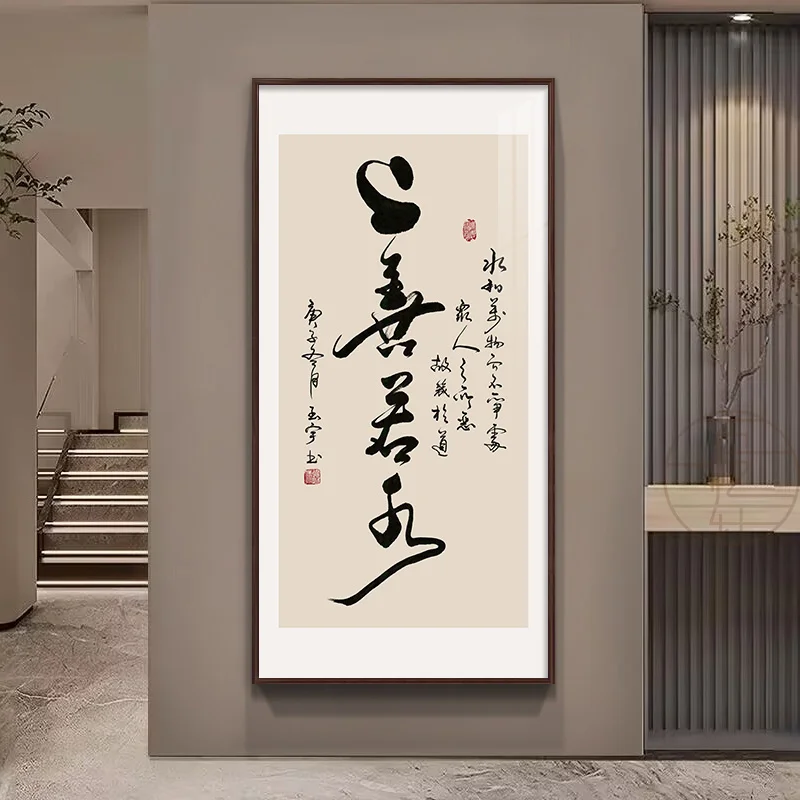 上善若水
水利萬物而不爭處
眾人之所惡
故幾於道
庚子冬月 玉宇书